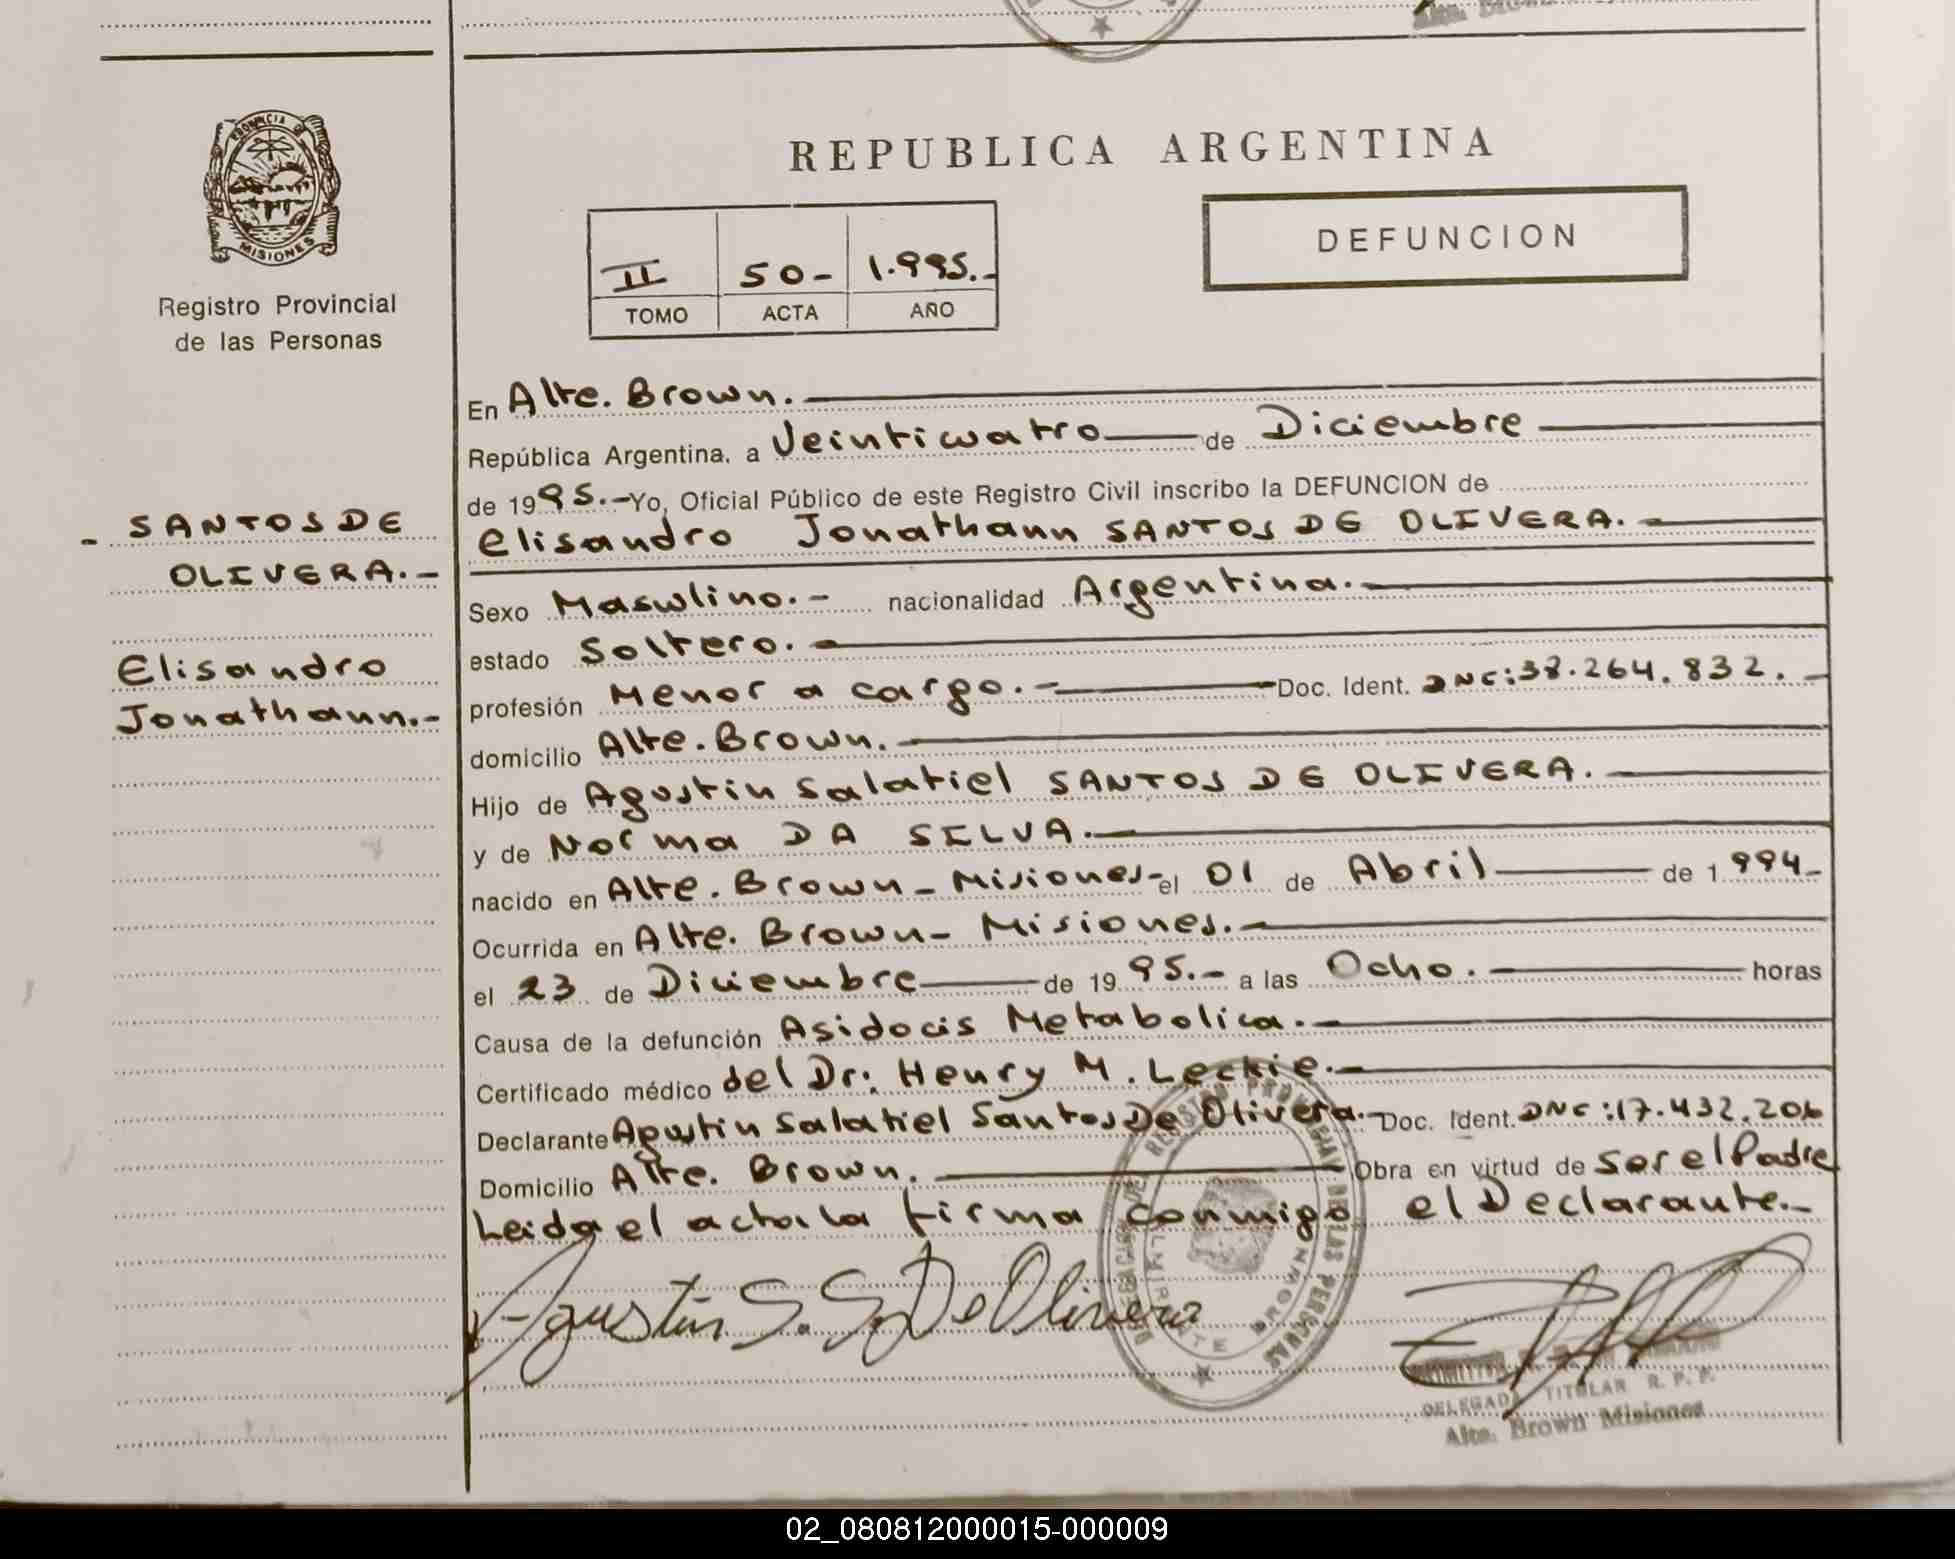 PROVINCIA D
MISIONES
Registro Provincial
de las Personas
REPUBLICA ARGENTINA
DEFUNCION
II 50- 1.995.-
TOMO ACTA AÑO
- SANTOS DE
OLIVERA.-
Elisandro
Jonathann.-
En Alte. Brown.
República Argentina, a Veinticuatro de Diciembre
de 1995.- Yo, Oficial Público de este Registro Civil inscribo la DEFUNCION de
Elisandro Jonathann SANTOS DE OLIVERA.-
Sexo Masculino.- nacionalidad Argentina.-
estado Soltero.-
profesión Menor a cargo.- Doc. Ident. DNC:38.264.832.-
domicilio Alte. Brown.
Hijo de Agustin Salatiel SANTOS DE OLIVERA.
y de Norma DA SILVA.-
nacido en Alte. Brown - Misiones- el 01 de Abril de 1.994-
Ocurrida en Alte. Brown- Misiones.-
el 23 de Diciembre de 1995.- a las Ocho. horas
Causa de la defunción Asidocis Metabolica.-
Certificado médico del Dr: Henry M. Leckie.-
Declarante Agustin Salatiel Santos De Olivera.- Doc. Ident. DNC:17.432.206
Domicilio Alte. Brown. Obra en virtud de Ser el Padre
Leida el acta la firma conmigo el Declarante.-
Agustín S. S. De Olivera
REGISTRO PROVINCIAL DE LAS PERSONAS
ALMIRANTE BROWN
DELEGADA TITULAR R. P. P.
Alte. Brown Misiones
02_080812000015-000009